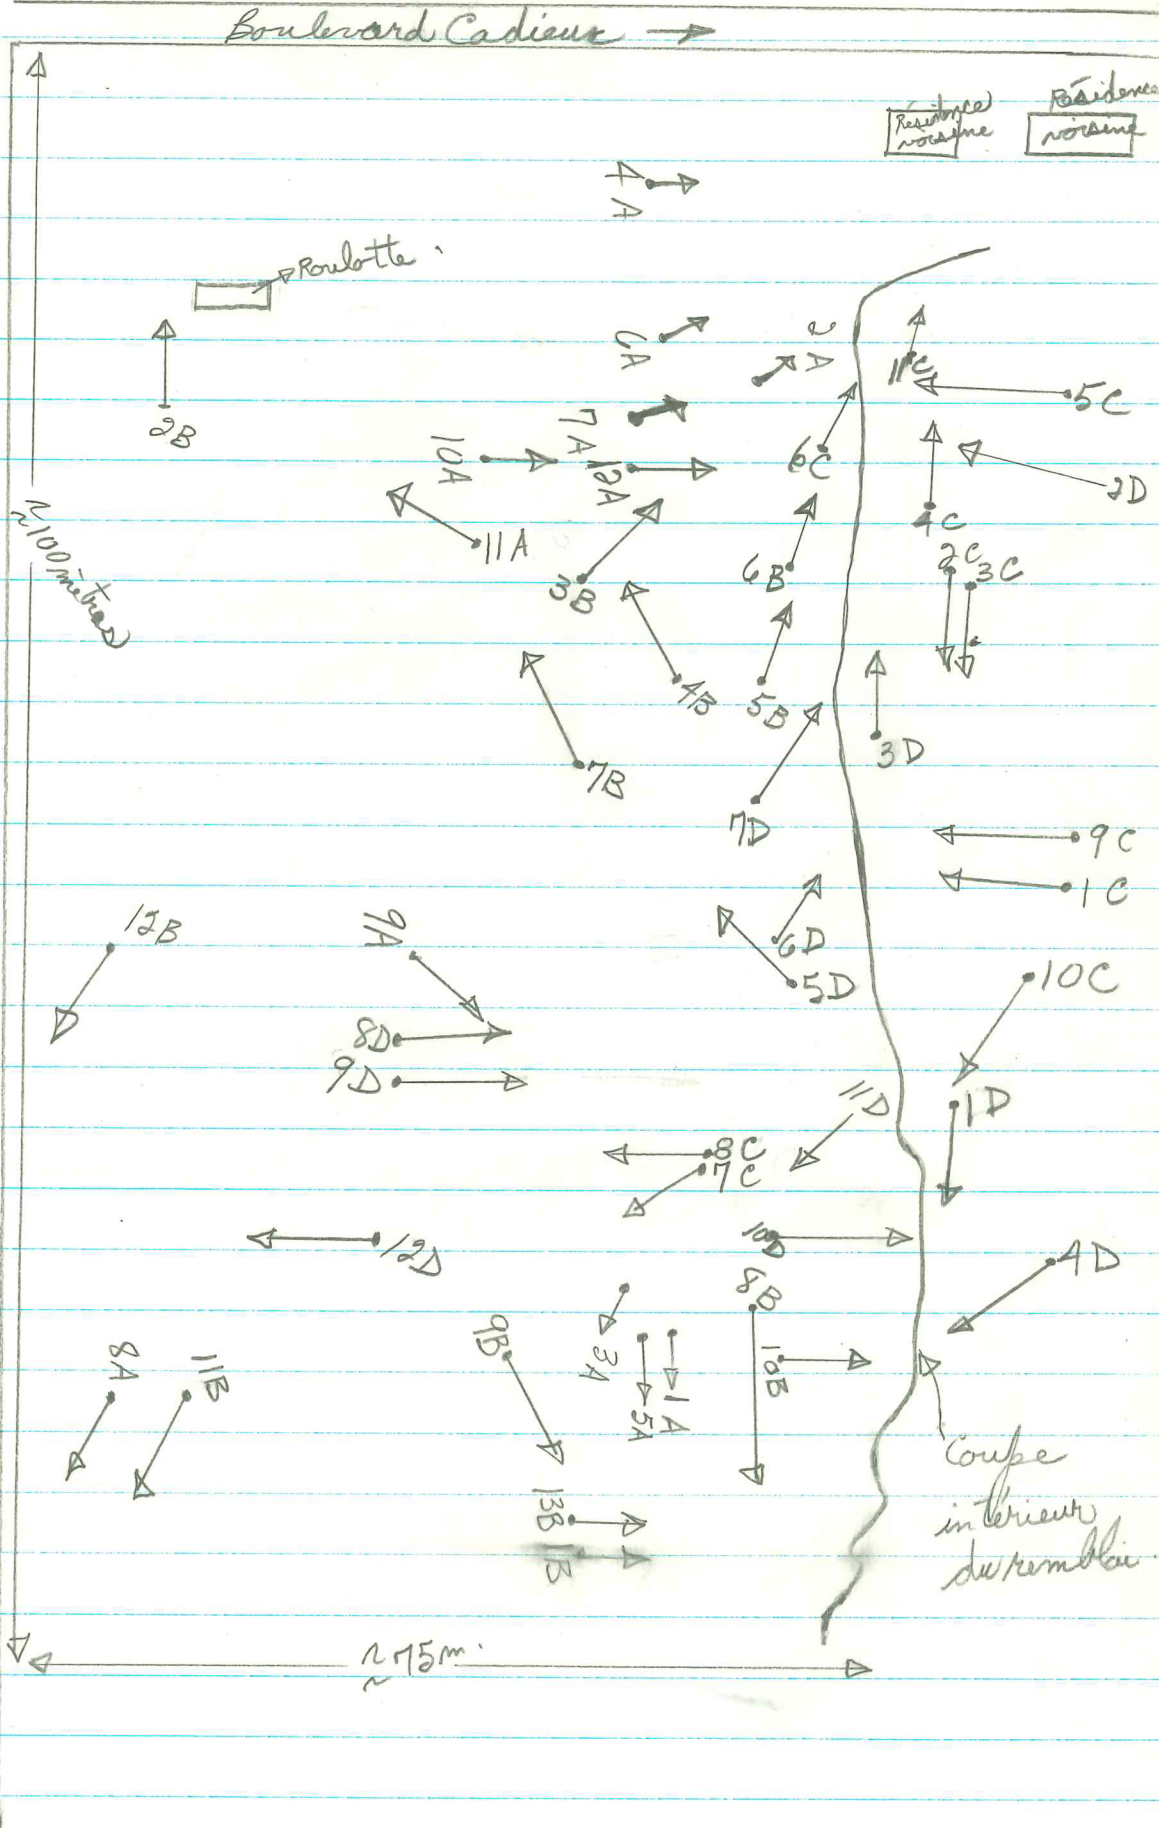 Boulevard Cadieux
Résidence
voisine
Résidence
voisine
4A
Roulotte
6A
2A
11C
5C
7A
2B
10A
12A
6C
2D
4C
11A
≈100 mètres
2C
3C
3B
6B
4B
5B
3D
7B
7D
9C
1C
12B
9A
6D
5D
10C
8D
9D
11D
1D
8C
7C
12D
10D
4D
8B
9B
3A
8A
11B
10B
1A
5A
Coupe
intérieur
du remblai
13B
1B
≈75m.